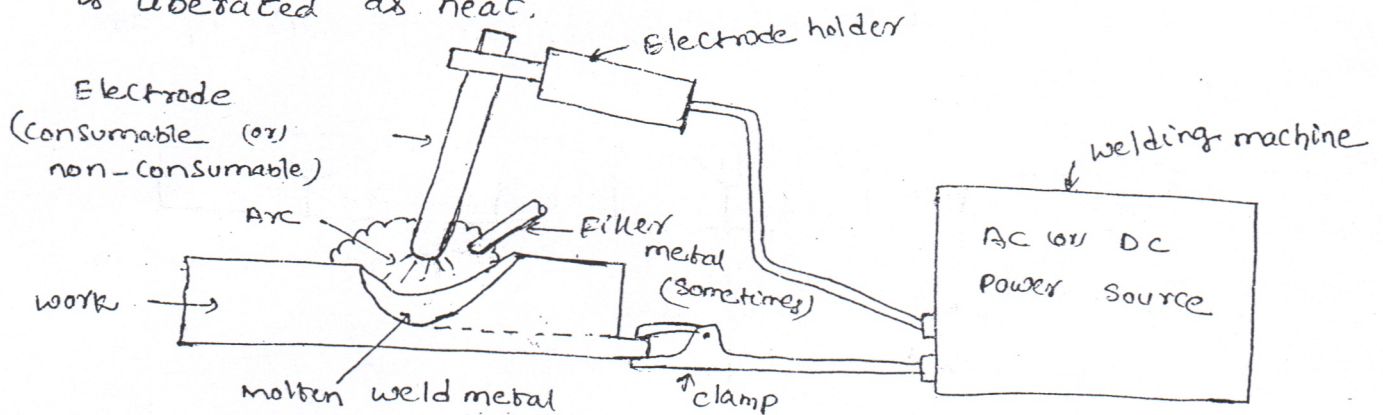 is liberated as heat.
Electrode holder
Electrode
(consumable (or)
non-consumable)
welding machine
Arc
Filler
metal
(sometimes)
AC (or) DC
Power Source
work
molten weld metal
clamp